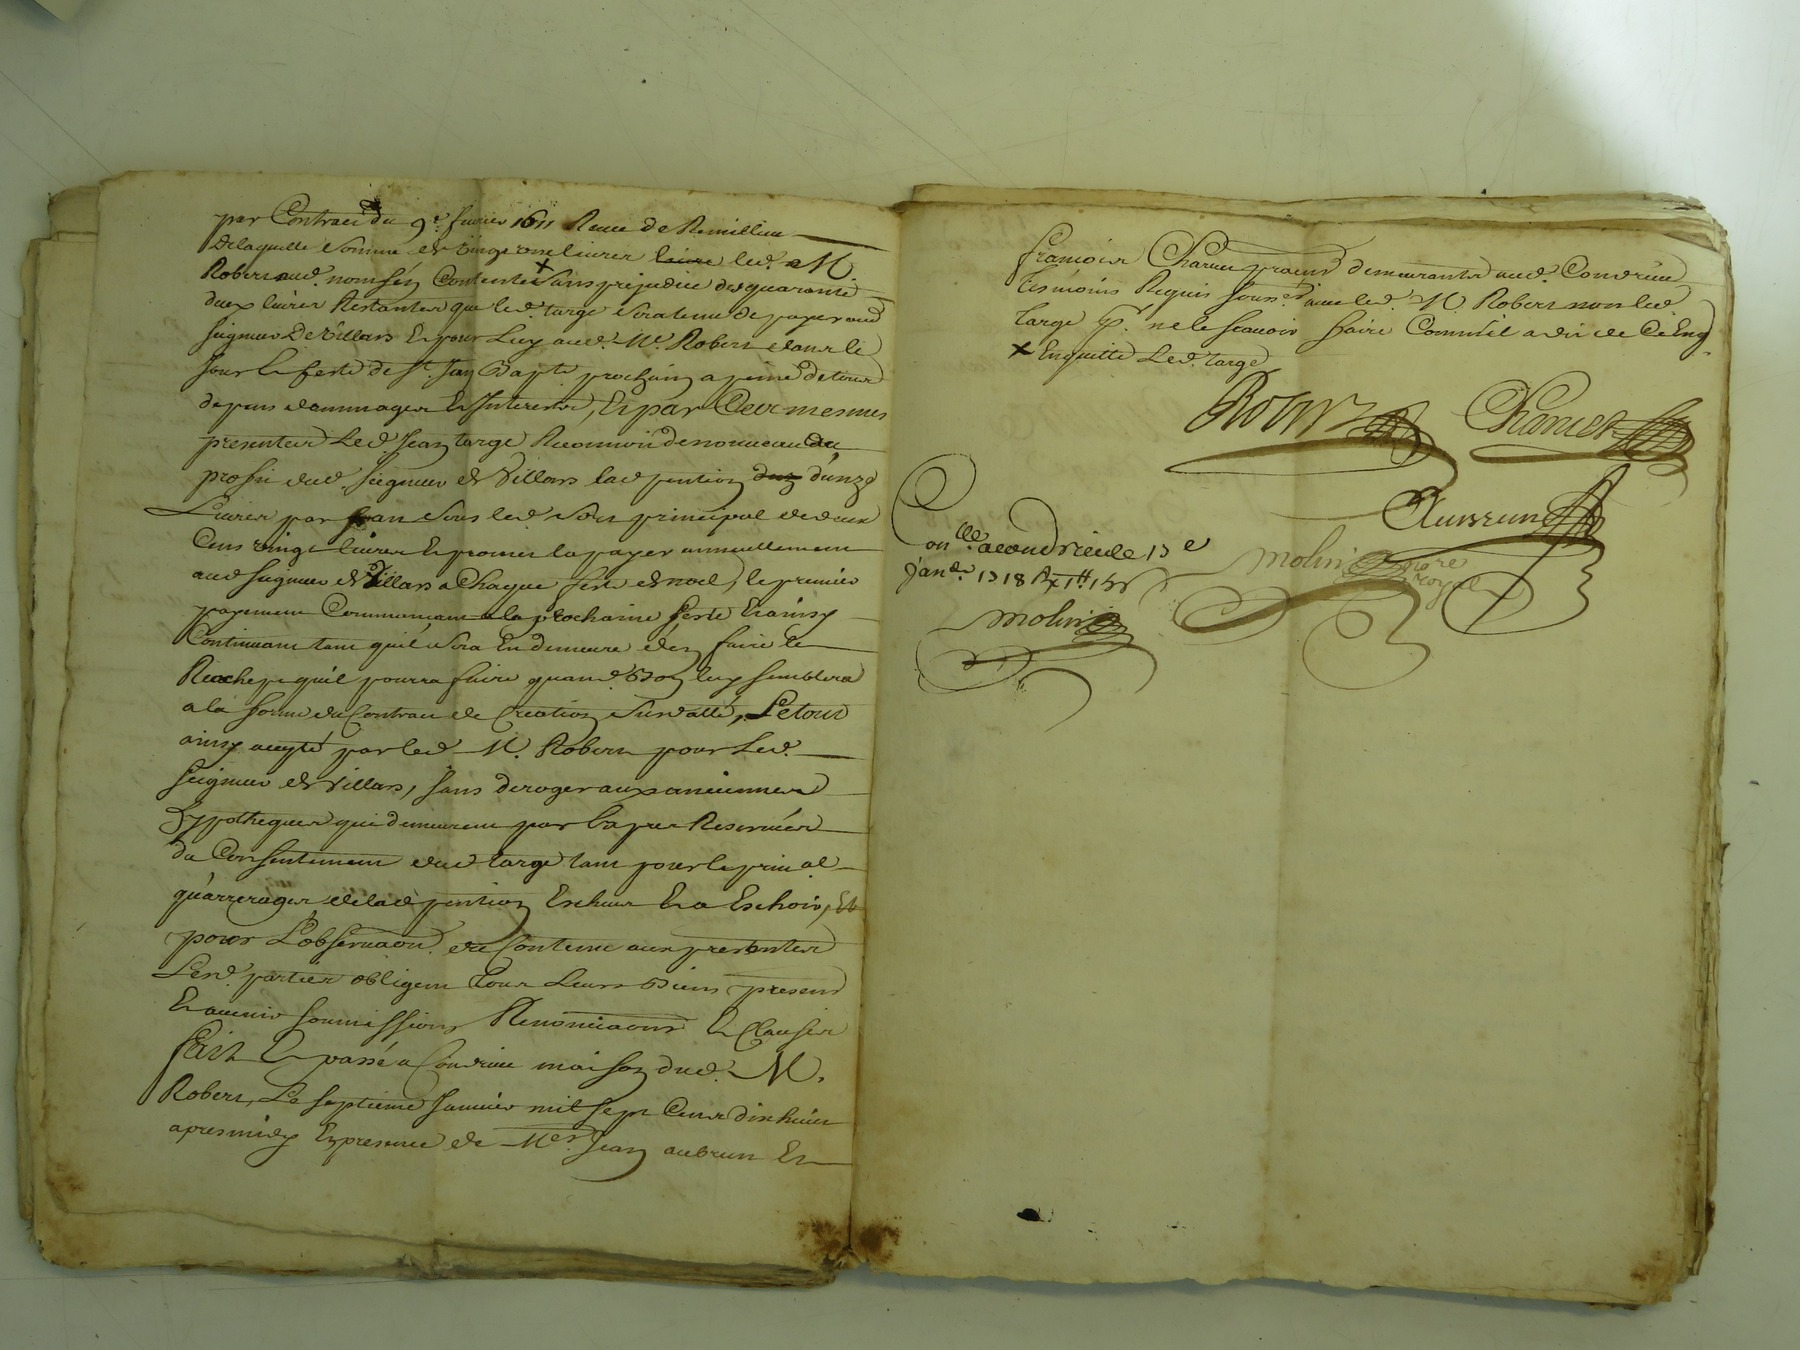 par Contract du 9e. fevrier 1611 Receu de Remillieu
De laquelle somme de vingt onze livres livre led. M.
Robert aud. nom s'en Contente X sans prejudice des quarante
deux livres Restantes que led. targe sera tenu de payer aud
seigneur De villars Et pour Luy aud. Mr. Robert dans le
Jour & feste de St. Jean Bapte. prochain a peine de tous
depens dommages Et Interests, Et par Ces mesmes
presentes Led. Jean targe Reconnoit de nouveau au
proffit dud. Seigneur de Villars lad. pention d'unze
Livres par an sous led. sort principal de deux
Cens vingt livres Et promet la payer annuellement
aud seigneur de Villars a Chaque feste de noel, le premier
payement Commancant a la prochaine feste Et ainsy
Continuant tant qu'il sera En demeure d'en faire le
Rachept qu'il pourra faire quand Bon luy semblera
a la forme du Contract de Creation sus datté, Le tout
ainsy accepté par led. M. Robert pour Led.
seigneur de villars, sans deroger aux anciennes
hypotheques qui demeurent par Exprés Reservées
du Consentement dud targe tant pour le prin.al
qu'arrerages de lad pention Escheus Et a Eschoir, Et
pour L'observaon. du Contenu aux presentes
Lesd. parties obligent tous Leurs Biens presens
Et avenir soumissions Renonciaons Et Clauses
fait Et passé a Condrieu maison dud. M.
Robert, Le septieme Janvier mil sept Cens dix huict
apres midy En presence de Mes. Jean aubrun Et
francois Charvet pratens demeurants aud. Condrieu
tesmoins Requis soussés. avec led. M. Robert non led.
targe pr. ne le scavoir faire Comme il a dit de Ce Enq.
X En quitte Led. targe
Robert
Charvet
Aubrun
Conlle. a Condrieu le 13e
janr. 1718 Rx 1tt 13s
molin
molin nore
royal